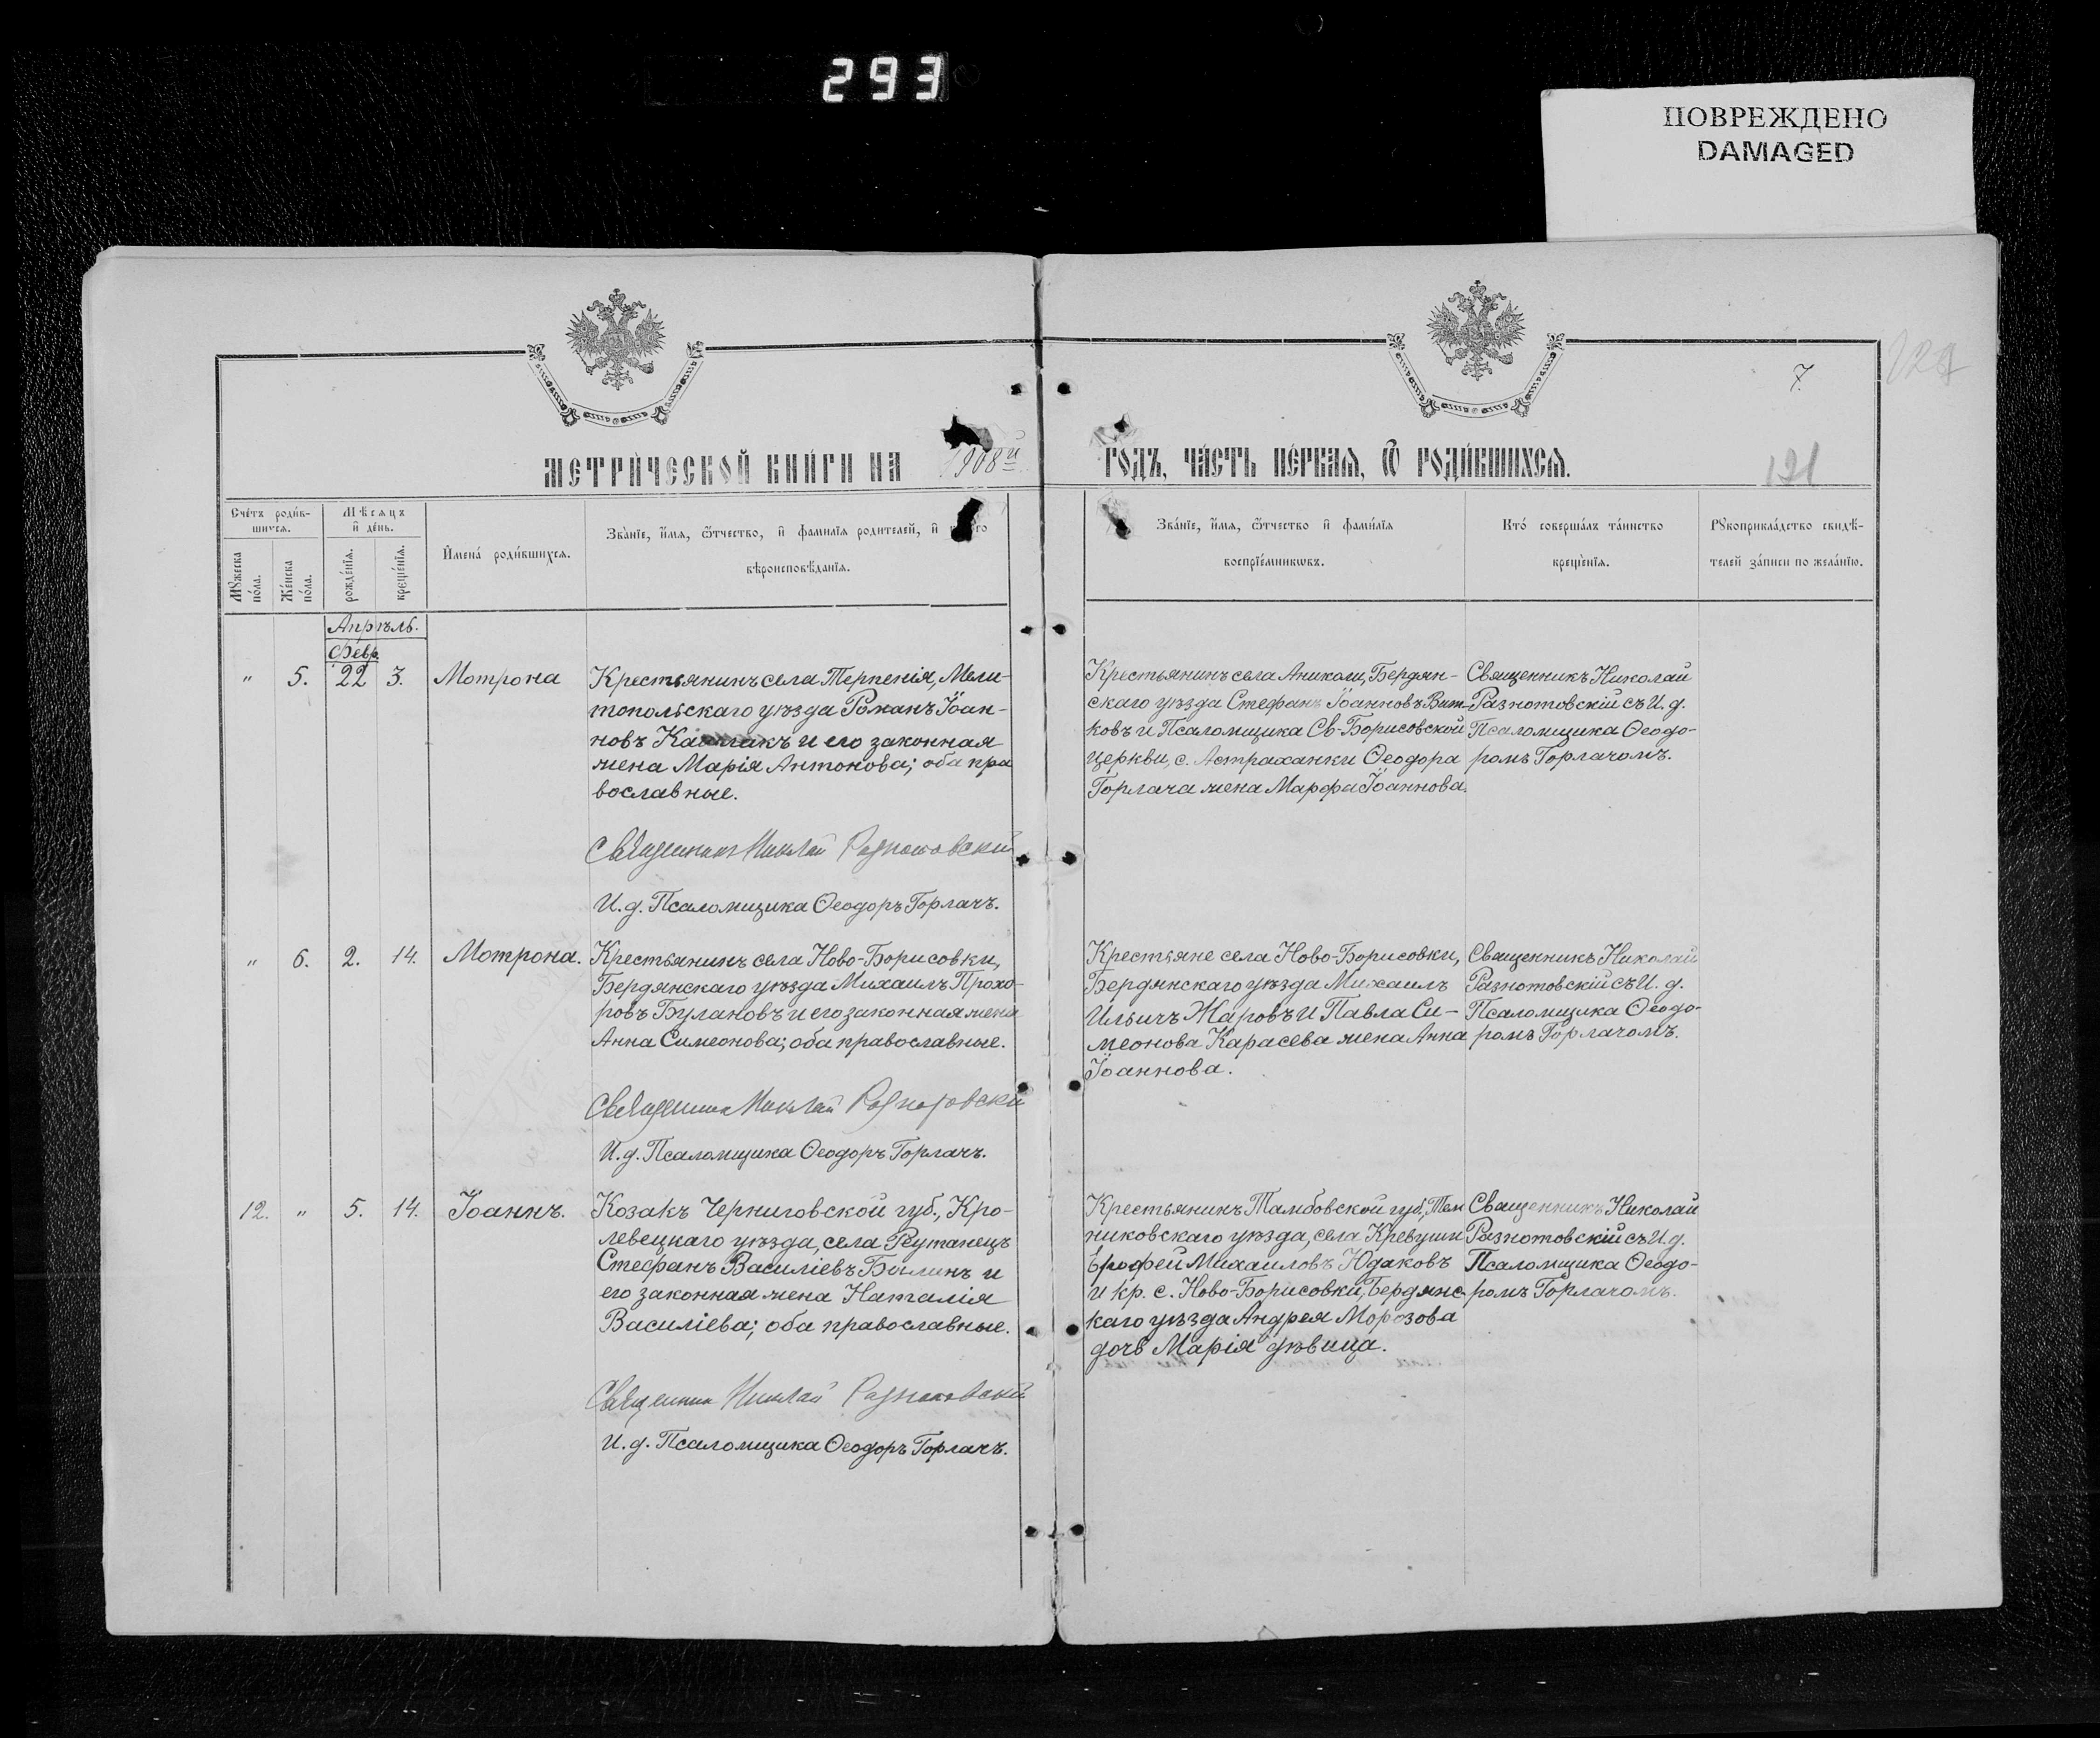 293
ПОВРЕЖДЕНО
DAMAGED
7.
МЕТРИЧЕСКОЙ КНИГИ НА 1908й
ГОДЪ, ЧАСТЬ ПЕРВАЯ, Ѿ РОДИВШИХСЯ.
121
Счетъ родив-
шихся.
Мѣсяцъ
и день.
Мужеска
пола.
Женска
пола.
рожденія.
крещенія.
Имена родившихся.
Званіе, имя, ѿтчество, и фамилія родителей, и
вѣроисповѣданія.
Званіе, имя, ѿтчество и фамилія
воспріемниковъ.
Кто совершалъ таинство
крещенія.
Рукоприкладство свидѣ-
телей записи по желанію.
Апрѣль.
Февр.
" 5. 22 3. Мотрона
Крестьянинъ села Терпенія, Мели-
топольскаго уѣзда Романъ Іоан-
новъ и его законная
жена Марія Антонова; оба пра
вославные.
Священникъ Николай Разнотовскій
И. д. Псаломщика Ѳеодоръ Горлачъ.
Крестьянинъ села Аниколи, Бердян-
скаго уѣзда Стефанъ Іоанновъ Вит-
ковъ и Псаломщика Св-Борисовской
церкви, с. Астраханки Ѳеодора
Горлача жена Марфа Іоаннова.
Священникъ Николай
Разнотовскій съ И. д.
Псаломщика Ѳеодо-
ромъ Горлачомъ.
" 6. 2. 14. Мотрона.
Крестьянинъ села Ново-Борисовки,
Бердянскаго уѣзда Михаилъ Прохо-
ровъ Булановъ и его законная жена
Анна Симеонова; оба православные.
Священникъ Николай Разнотовскій
И. д. Псаломщика Ѳеодоръ Горлачъ.
Крестьяне села Ново-Борисовки,
Бердянскаго уѣзда Михаилъ
Ильичъ Жаровъ и Павла Си-
меонова Карасева жена Анна
Іоаннова.
Священникъ Николай
Разнотовскій съ И. д.
Псаломщика Ѳеодо-
ромъ Горлачомъ.
12. " 5. 14. Іоаннъ.
Козакъ Черниговской губ., Кро-
левецкаго уѣзда, села Реутанецъ
Стефанъ Василіевъ Былинъ и
его законная жена Наталія
Василіева; оба православные.
Священникъ Николай Разнотовскій
И. д. Псаломщика Ѳеодоръ Горлачъ.
Крестьянинъ Тамбовской губ, Тем
никовскаго уѣзда, села Кревуши
Ерофей Михаиловъ Юдаковъ
и кр. с. Ново-Борисовки, Бердянс
каго уѣзда Андрея Морозова
дочь Марія дѣвица.
Священникъ Николай
Разнотовскій съ И. д.
Псаломщика Ѳеодо-
ромъ Горлачомъ.